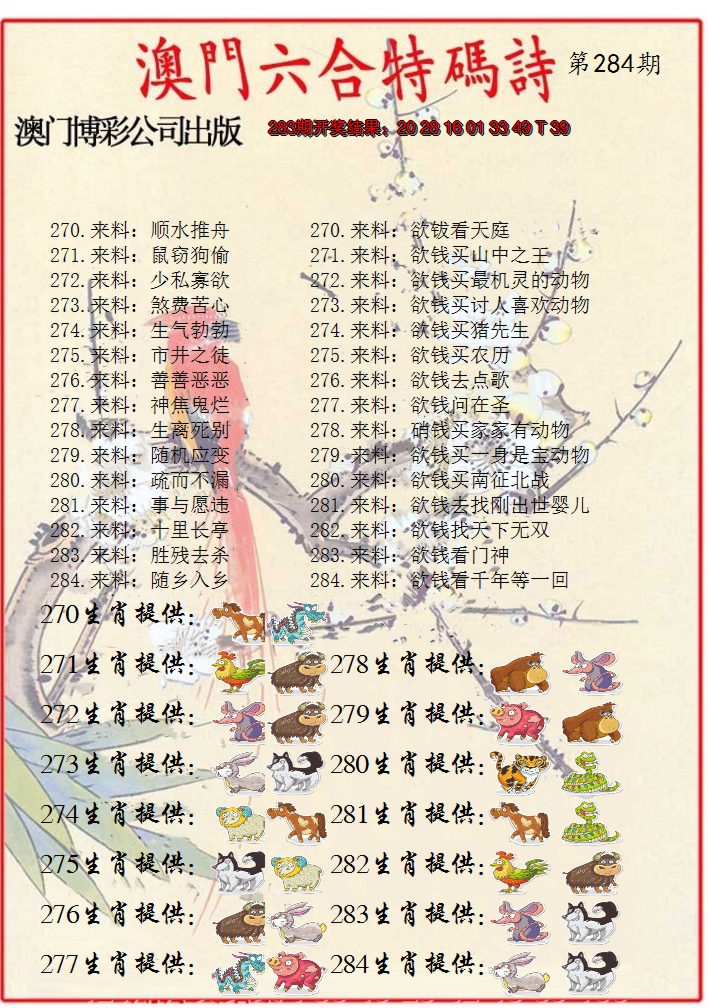 澳門六合特碼詩 第284期
澳门博彩公司出版 283期开奖结果：20 28 16 01 33 49 T 39
270.来料：顺水推舟 270.来料：欲钹看天庭
271.来料：鼠窃狗偷 271.来料：欲钱买山中之王
272.来料：少私寡欲 272.来料：欲钱买最机灵的动物
273.来料：煞费苦心 273.来料：欲钱买讨人喜欢动物
274.来料：生气勃勃 274.来料：欲钱买猪先生
275.来料：市井之徒 275.来料：欲钱买农历
276.来料：善善恶恶 276.来料：欲钱去点歌
277.来料：神焦鬼烂 277.来料：欲钱问在圣
278.来料：生离死别 278.来料：硝钱买家家有动物
279.来料：随机应变 279.来料：欲钱买一身是宝动物
280.来料：疏而不漏 280.来料：欲钱买南征北战
281.来料：事与愿违 281.来料：欲钱去找刚出世婴儿
282.来料：十里长亭 282.来料：欲钱找天下无双
283.来料：胜残去杀 283.来料：欲钱看门神
284.来料：随乡入乡 284.来料：欲钱看千年等一回
270生肖提供：
271生肖提供： 278生肖提供：
272生肖提供： 279生肖提供：
273生肖提供： 280生肖提供：
274生肖提供： 281生肖提供：
275生肖提供： 282生肖提供：
276生肖提供： 283生肖提供：
277生肖提供： 284生肖提供：